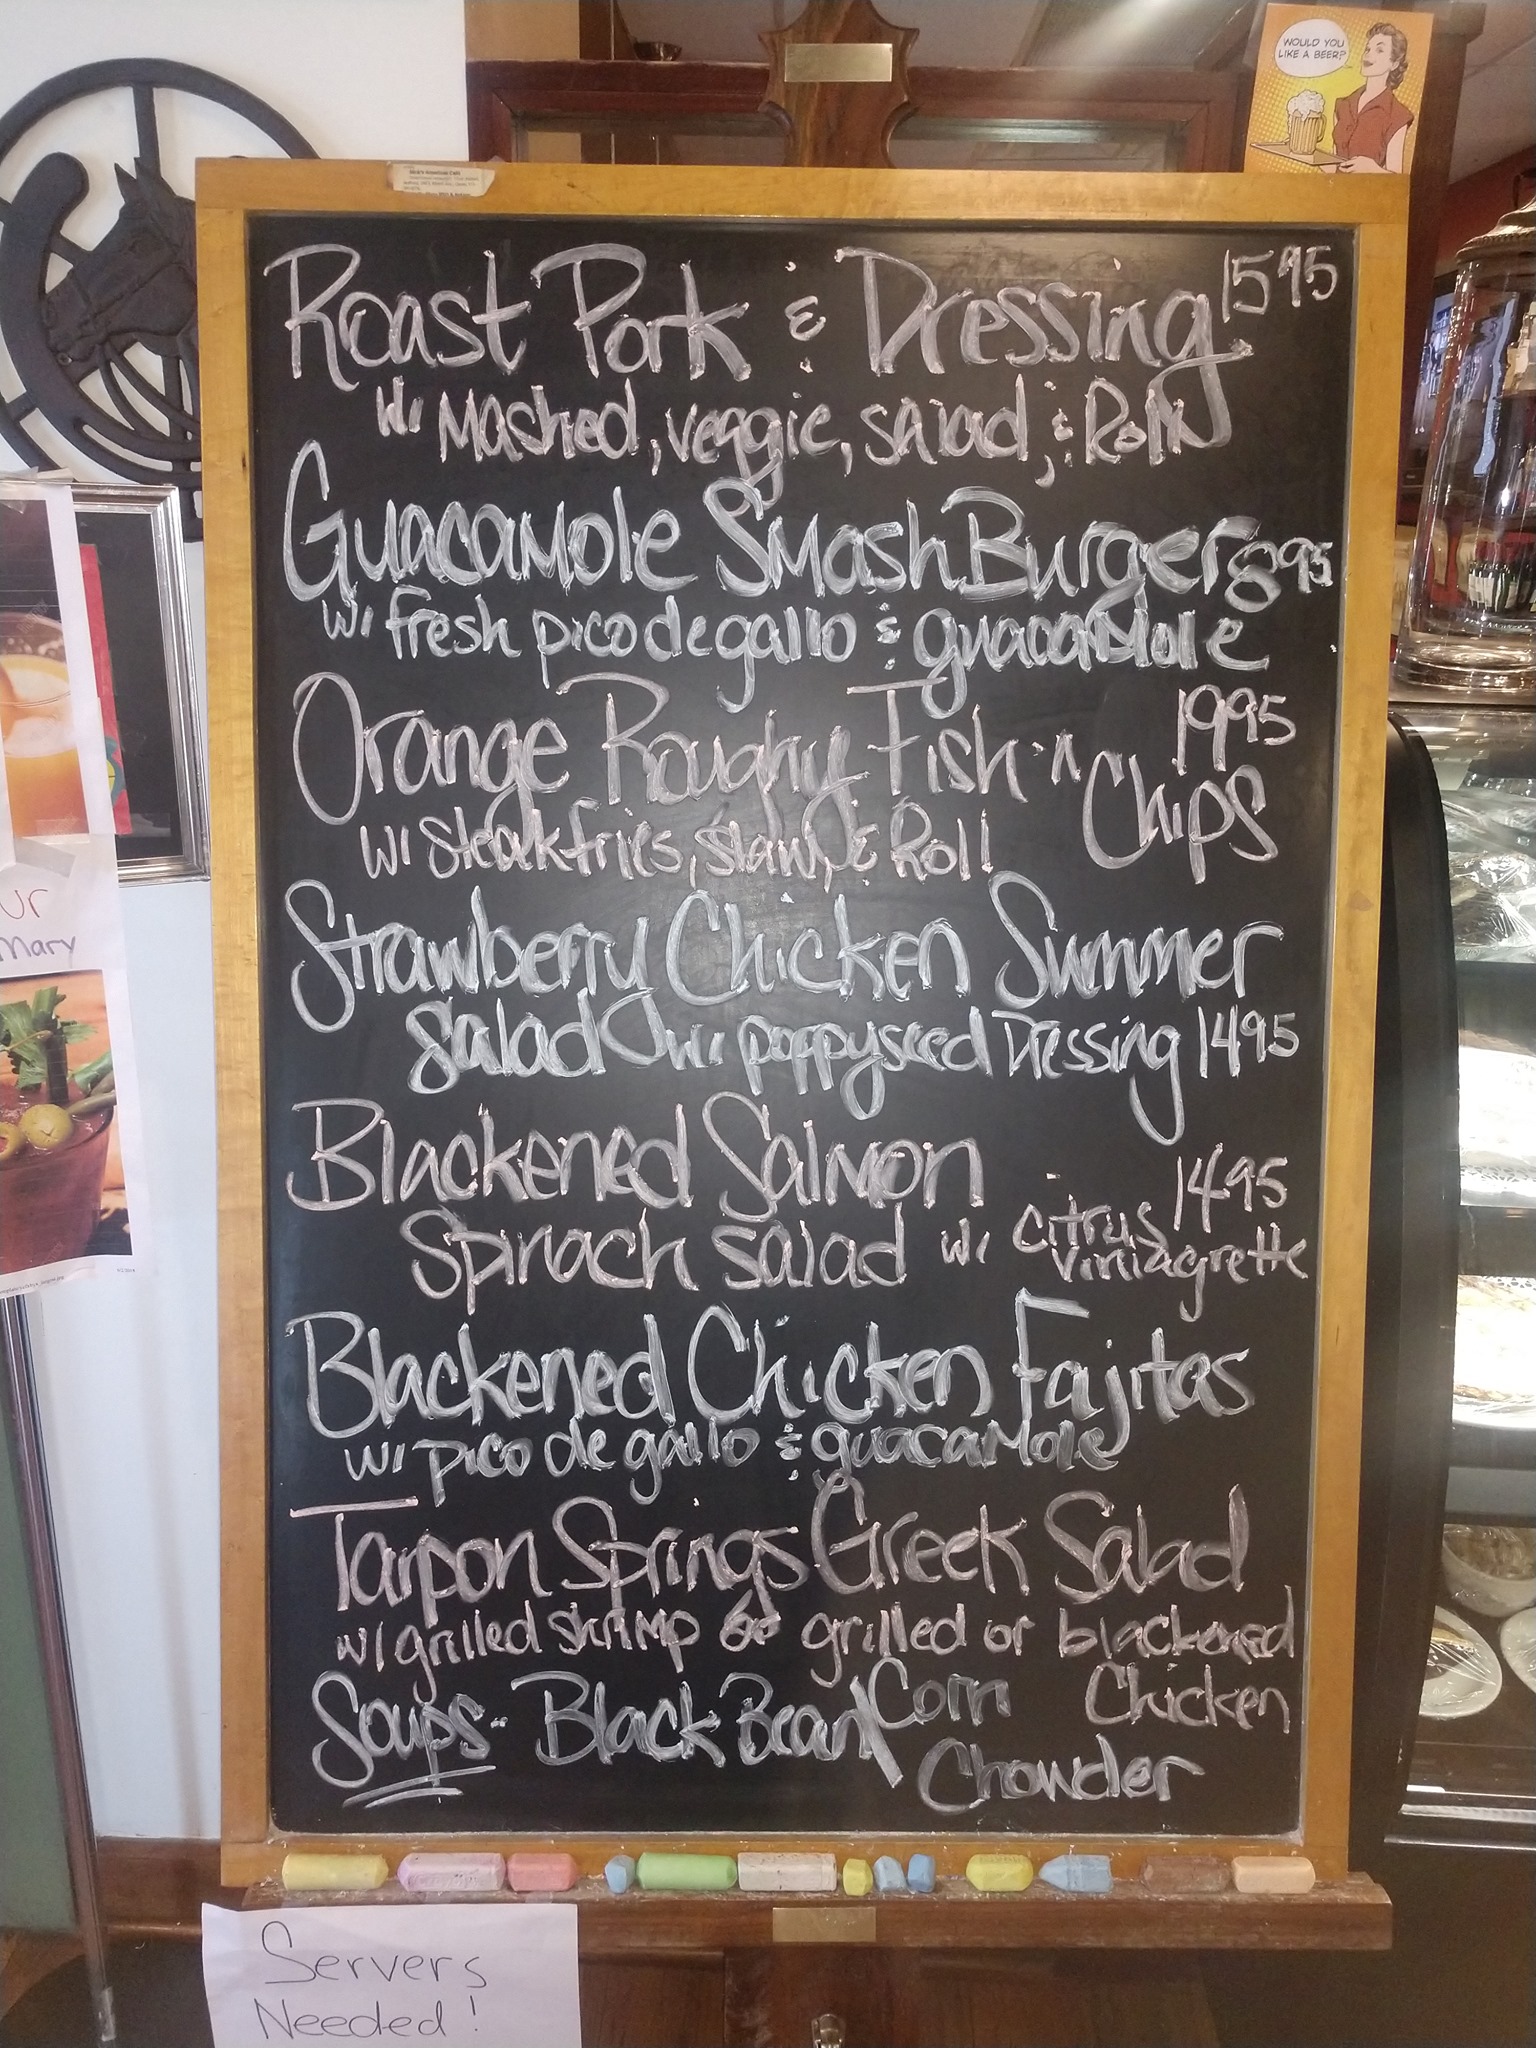 WOULD YOU
LIKE A BEER?
Roast Pork & Dressing 15 95
w/ Mashed, veggie, salad, & Roll
Guacamole Smash Burger 8 95
w/ fresh pico de gallo & guacamole
Orange Roughy Fish n Chips 19 95
w/ steak fries, slaw, & Roll
Strawberry Chicken Summer
Salad w/ poppyseed Dressing 14 95
Blackened Salmon 14 95
Spinach salad w/ citrus
viniagrette
Blackened Chicken Fajitas
w/ pico de gallo & guacamole
Tarpon Springs Greek Salad
w/ grilled shrimp or grilled or blackened
Chicken
Soups - Black Bean / Corn
Chowder
ur
Mary
Servers
Needed!